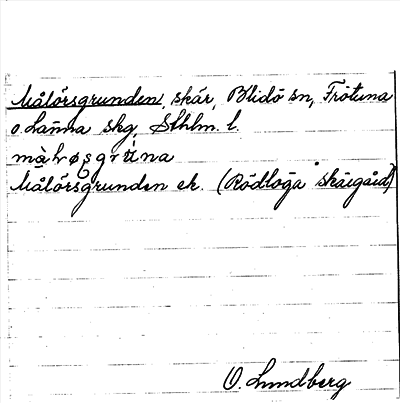 Målörsgrunden, skär, Blidö sn, Frötuna
o. Länna skg, Sthlm. l.
Målörsgrunden ek. (Rödlöga skärgård)
O. Lundberg